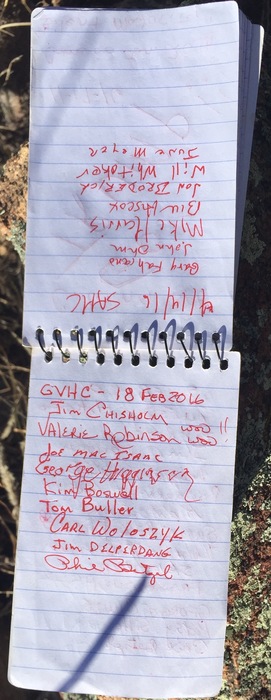 4/14/16 SAHC
John Ohm
Mike Harris
Bill Hiscox
Jon BRODERICK
Will Whitaker
June Meyer
GVHC - 18 FEB 2016
Jim CHISHOLM
VALERIE Robinson woo!!
JOE MAC ISAAC
George Higginson
Kim Boswell
Tom Buller
CARL WOLOSZYK
JIM DELPERDANG